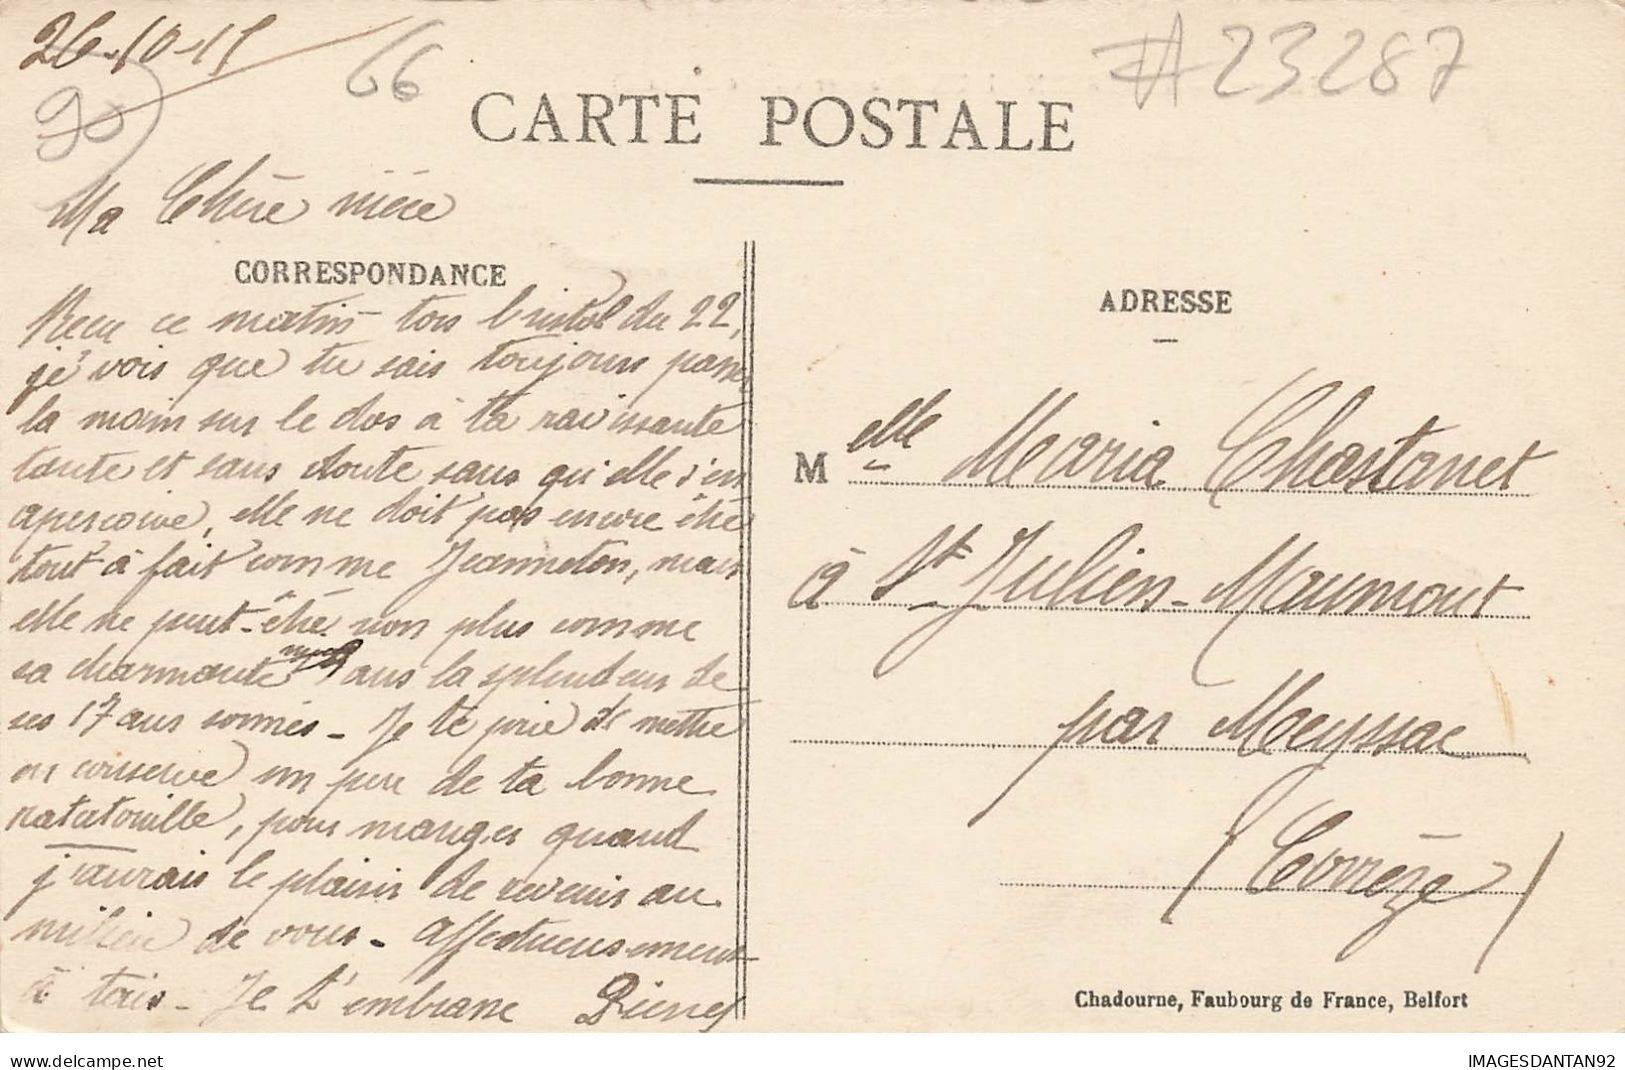 26-10-15
90
66
#23287
CARTE POSTALE
Ma Chère nièce
CORRESPONDANCE
Recu ce matin ton bristol du 22,
je vois que tu sais toujours passer
la main sur le dos à ta ravissante
tante et sans doute sans qu'elle s'en
apercoive, elle ne doit pas encore être
tout à fait comme Jeanneton, mais
elle ne peut-être non plus comme
sa charmante nièce dans la splendeur de
ses 17 ans sonnés - Je te prie de mettre
en conserve un peu de ta bonne
ratatouille, pour manger quand
j'aurais le plaisir de revenir au
milieu de vous - Affectueusement
à tois - Je t'embrasse Pierre
ADRESSE
Melle Maria Chastanet
à St Julien-Maumont
par Meyssac
(Corrèze)
Chadourne, Faubourg de France, Belfort
www.delcampe.net
IMAGESDANTAN92